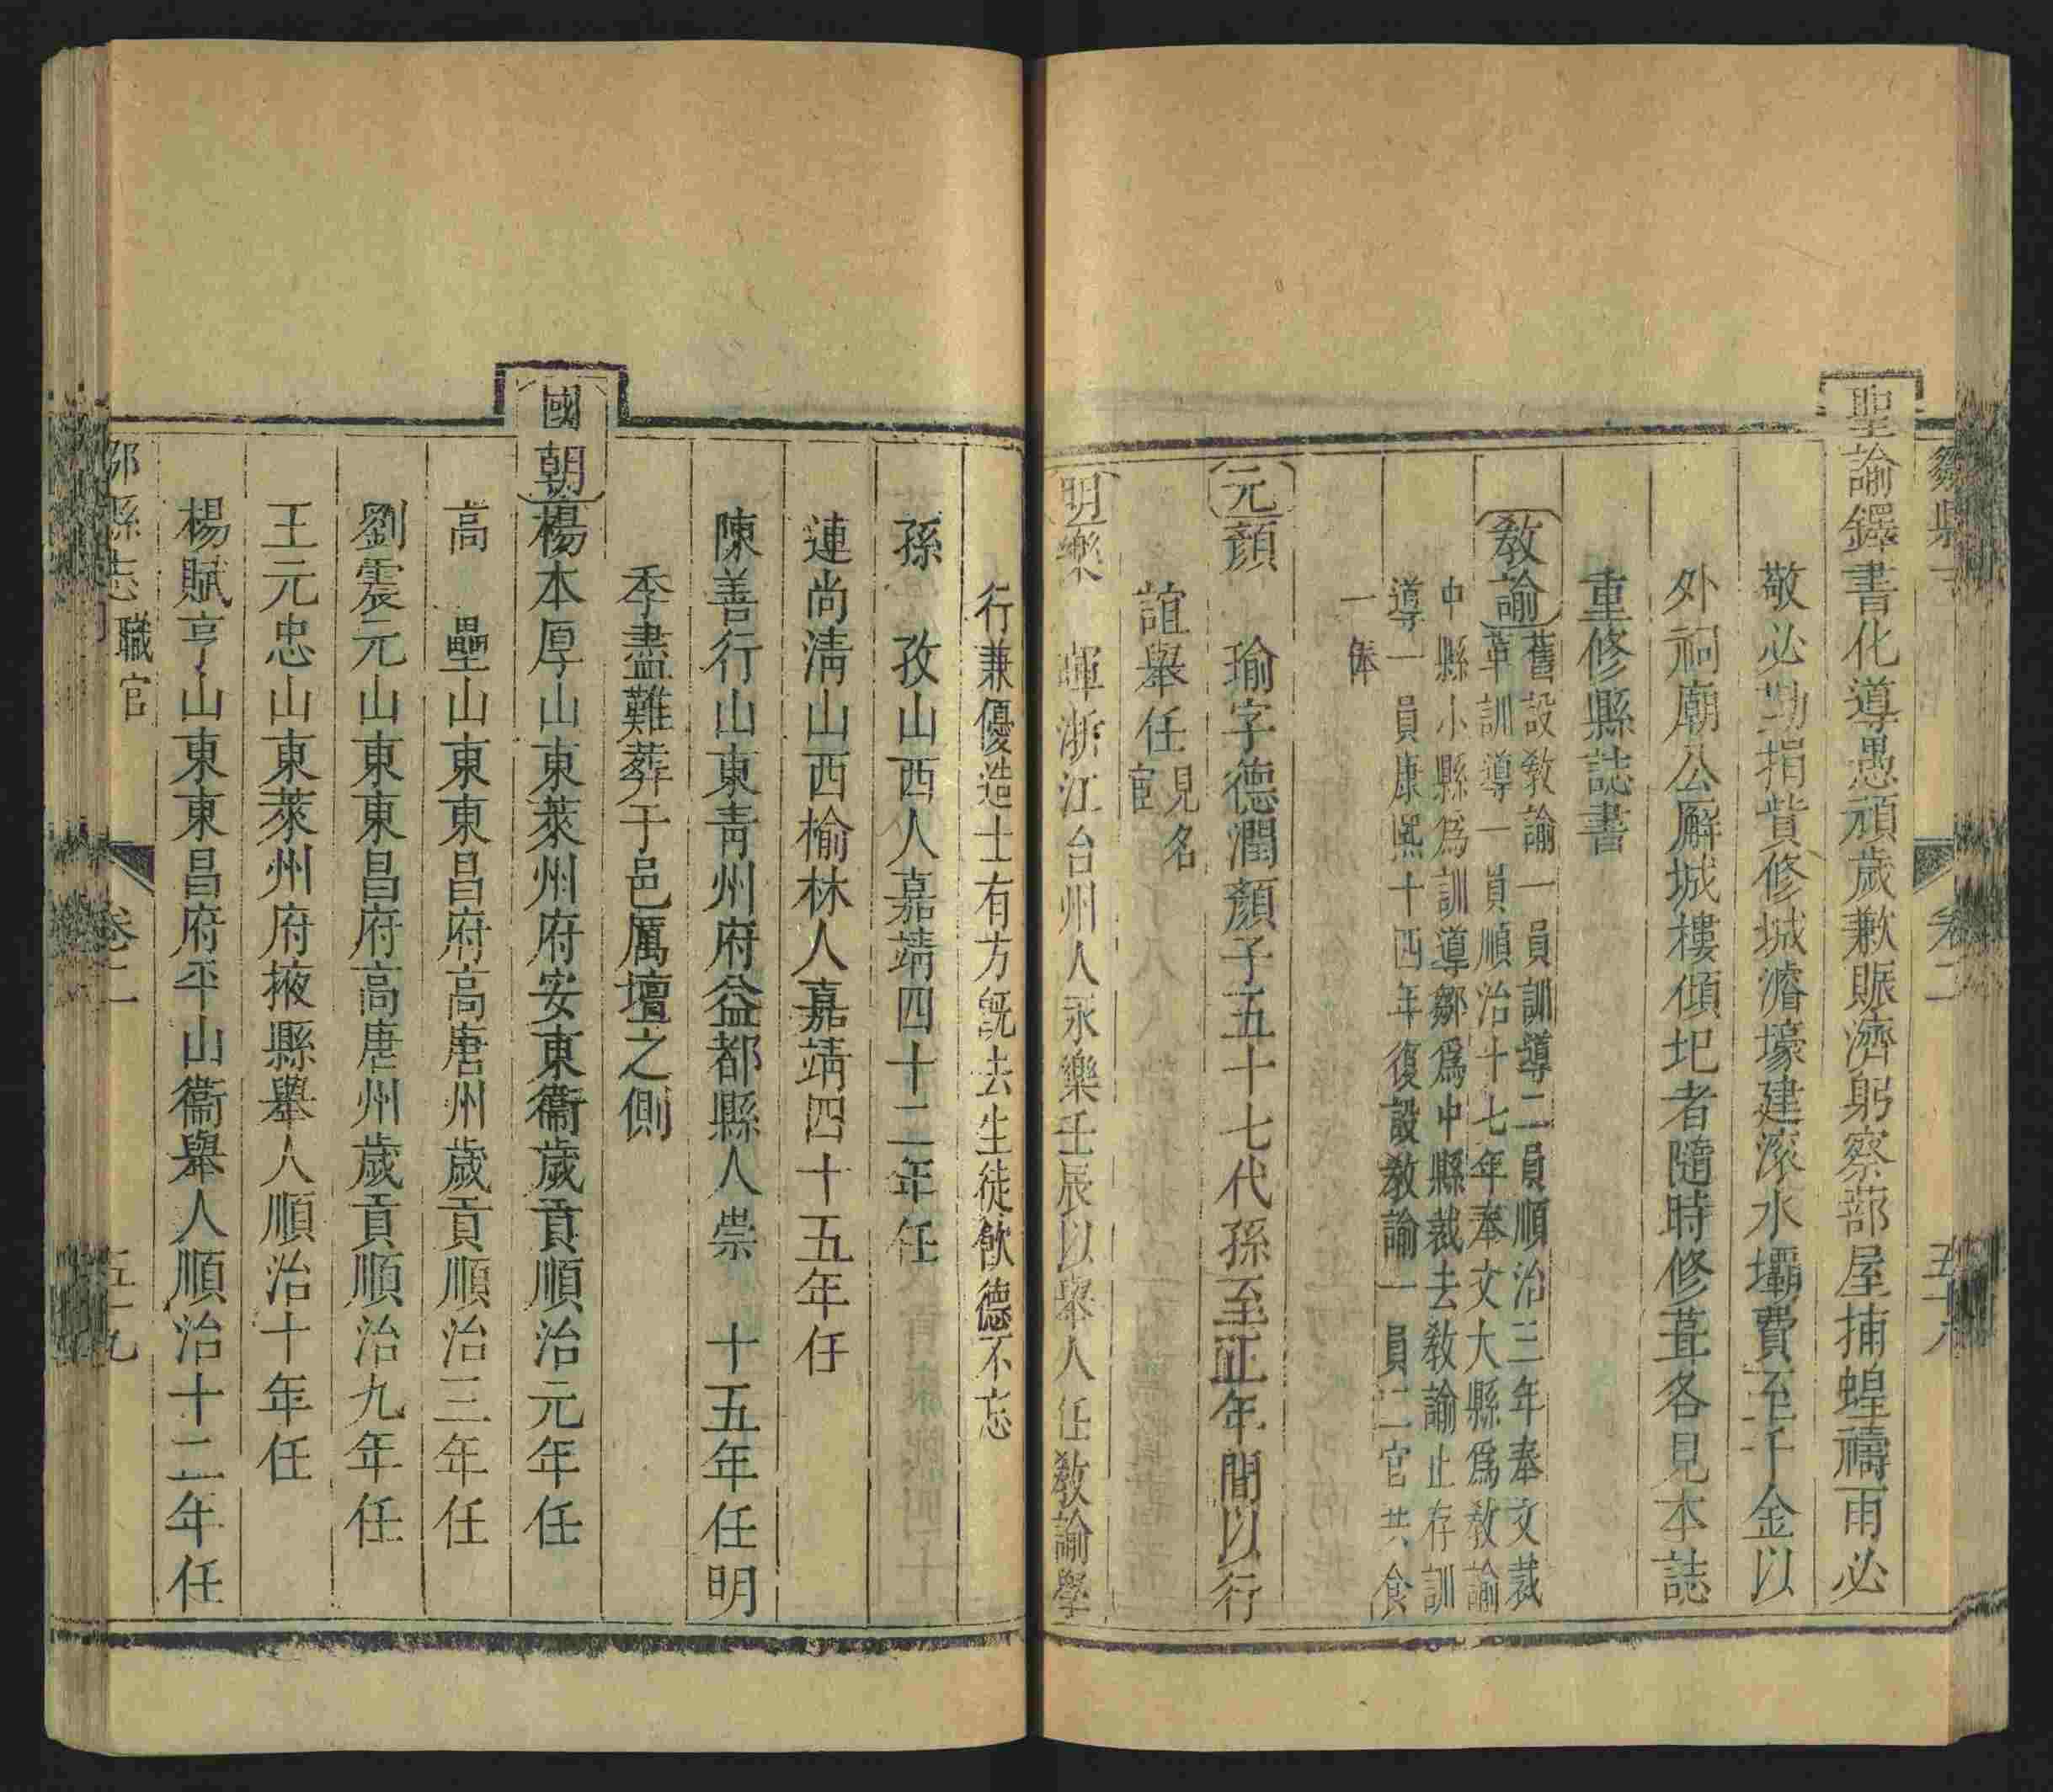 聖諭鐸書化導愚頑歲歉賑濟躬察蔀屋捕蝗禱雨必
敬必勤捐貲修城濬壕建滾水壩費至千金以
外祠廟公廨城樓傾圯者隨時修葺各見本誌
重修縣誌書
教諭
舊設教諭一員訓導二員順治三年奉文裁
革訓導一員順治十七年奉文大縣爲教諭
中縣小縣爲訓導鄒爲中縣裁去教諭止存訓
導一員康熙十四年復設教諭一員二官共食
一俸
元顏 瑜字德潤顏子五十七代孫至正年間以行
誼舉任見名
宦
明樂 暉浙江台州人永樂壬辰以舉人任教諭學
行兼優造士有方旣去生徒飲德不忘
孫 孜山西人嘉靖四十二年任
連尚清山西榆林人嘉靖四十五年任
陳善行山東青州府益都縣人崇 十五年任明
季盡難葬于邑厲壇之側
國朝楊本厚山東萊州府安東衞歲貢順治元年任
高 壘山東東昌府高唐州歲貢順治三年任
劉震元山東東昌府高唐州歲貢順治九年任
王元忠山東萊州府掖縣舉人順治十年任
楊賦亨山東東昌府平山衞舉人順治十二年任
鄒縣志 職官 卷二 五十九